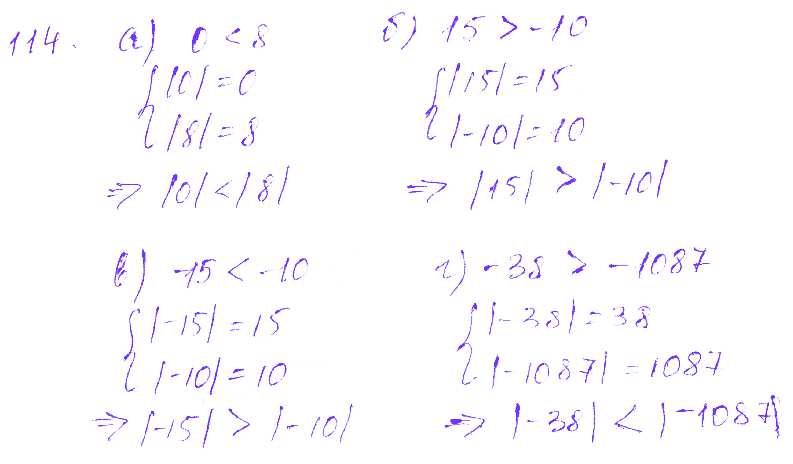 114. а) 0 < 8
{ |0| = 0
|8| = 8
⇒ |0| < |8|
б) 15 > -10
{ |15| = 15
|-10| = 10
⇒ |15| > |-10|
в) -15 < -10
{ |-15| = 15
|-10| = 10
⇒ |-15| > |-10|
г) -38 > -1087
{ |-38| = 38
|-1087| = 1087
⇒ |-38| < |-1087|